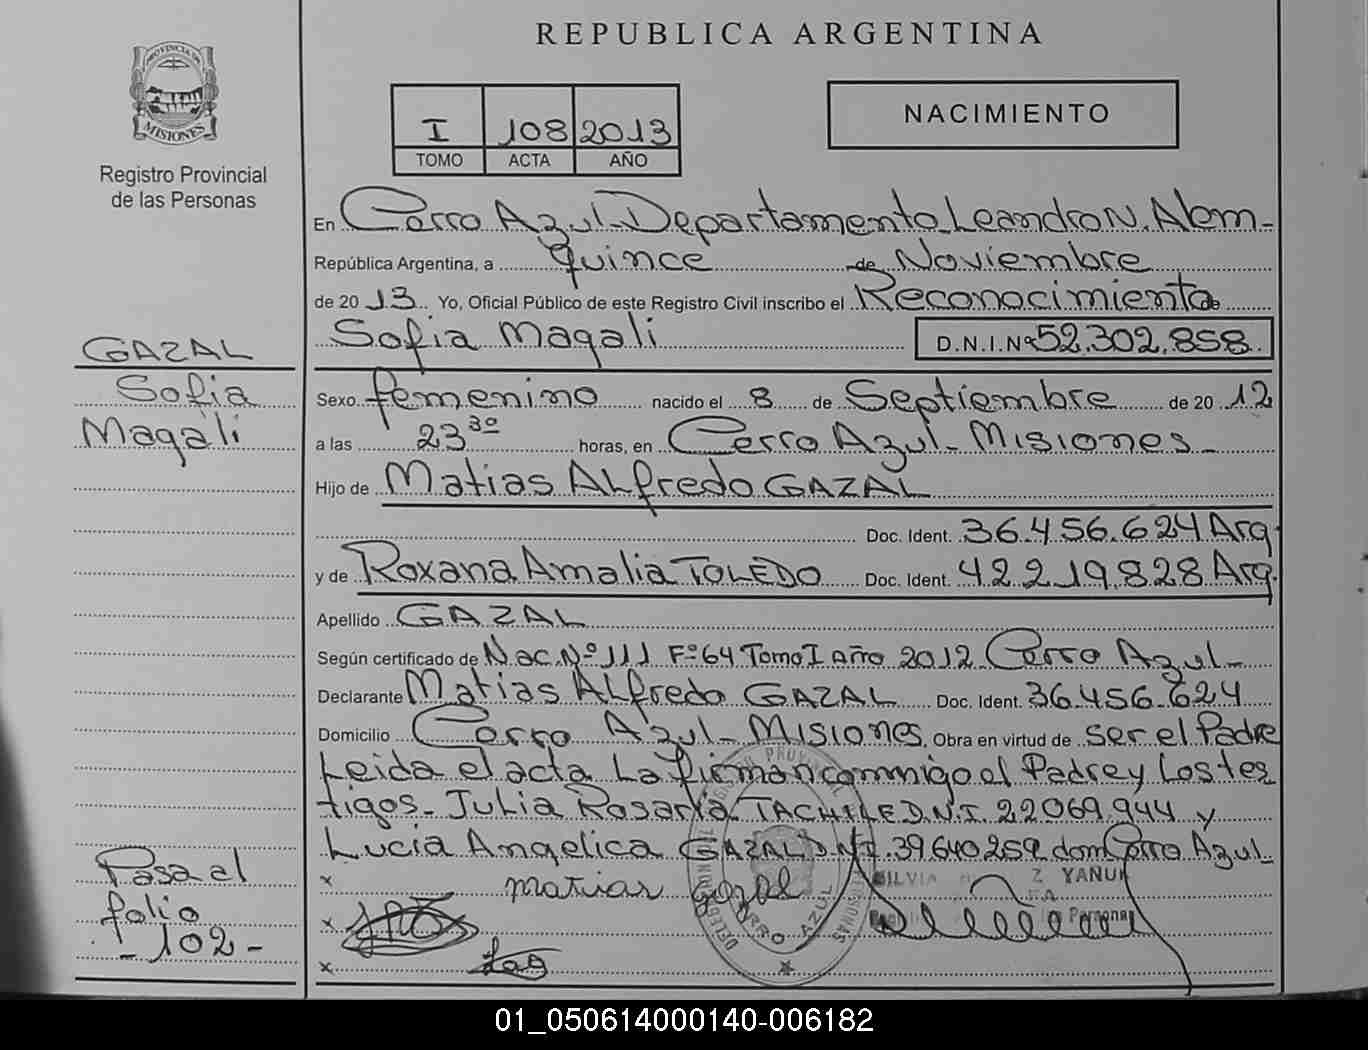 REPUBLICA ARGENTINA
PROVINCIA DE
MISIONES
Registro Provincial
de las Personas
I 108 2013
TOMO ACTA AÑO
NACIMIENTO
En Cerro Azul - Departamento Leandro N. Alem -
República Argentina, a quince de Noviembre
de 2013 Yo, Oficial Público de este Registro Civil inscribo el Reconocimiento de
Sofia Magali D.N.I.Nº 52.302.858
GAZAL
Sofia
Magali
Sexo femenino nacido el 8 de Septiembre de 2012
a las 23 30 horas, en Cerro Azul - Misiones -
Hijo de Matias ALfredo GAZAL
Doc. Ident. 36.456.624 Arg.
y de Roxana Amalia TOLEDO Doc. Ident. 42.219.828 Arg.
Apellido GAZAL
Según certificado de Nac. Nº 111 Fº 64 Tomo I Año 2012 Cerro Azul -
Declarante Matias ALfredo GAZAL Doc. Ident. 36.456.624
Domicilio Cerro Azul - Misiones. Obra en virtud de ser el Padre
Leida el acta La firman conmigo el Padre y Los tes
tigos - Julia Rosaria TACHILE D.N.I. 22069.944 y
Lucia Angelica GAZAL DNI. 39640259 dom Cerro Azul
Pasa el
folio
- 102 -
x matias gazal
SILVIA Z YANUK
x
x
CERRO AZUL
01_050614000140-006182